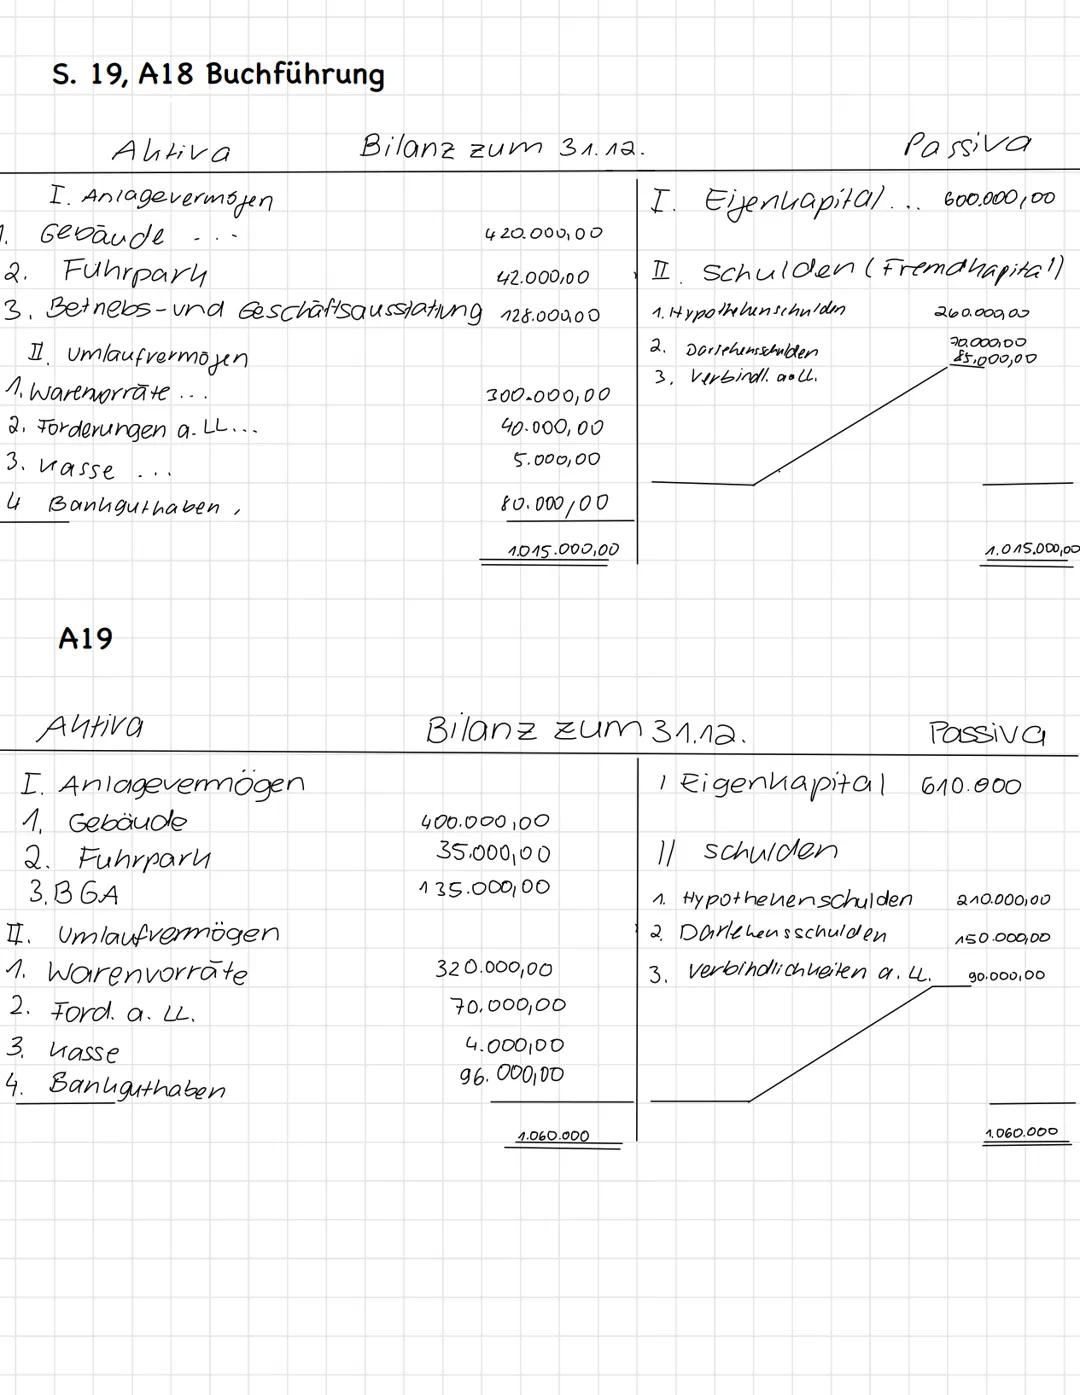 S. 19, A18 Buchführung
Aktiva Bilanz zum 31.12. Passiva
I. Anlagevermögen
1. Gebäude ... 420.000,00
2. Fuhrpark 42.000,00
3. Betriebs- und Geschäftsausstattung 128.000,00
II. Umlaufvermögen
1. Warenvorräte ... 300.000,00
2. Forderungen a. LL... 40.000,00
3. Kasse ... 5.000,00
4 Bankguthaben, 80.000,00
1.015.000,00
I. Eigenkapital... 600.000,00
II. Schulden (Fremdkapital)
1. Hypothekenschulden 260.000,00
2. Darlehensschulden 70.000,00
3. Verbindl. a. LL. 85.000,00
1.015.000,00
A19
Aktiva Bilanz zum 31.12. Passiva
I. Anlagevermögen
1. Gebäude 400.000,00
2. Fuhrpark 35.000,00
3. BGA 135.000,00
II. Umlaufvermögen
1. Warenvorräte 320.000,00
2. Ford. a. LL. 70.000,00
3. Kasse 4.000,00
4. Bankguthaben 96.000,00
1.060.000
I Eigenkapital 610.000
II Schulden
1. Hypothekenschulden 210.000,00
2. Darlehensschulden 150.000,00
3. Verbindlichkeiten a. LL. 90.000,00
1.060.000